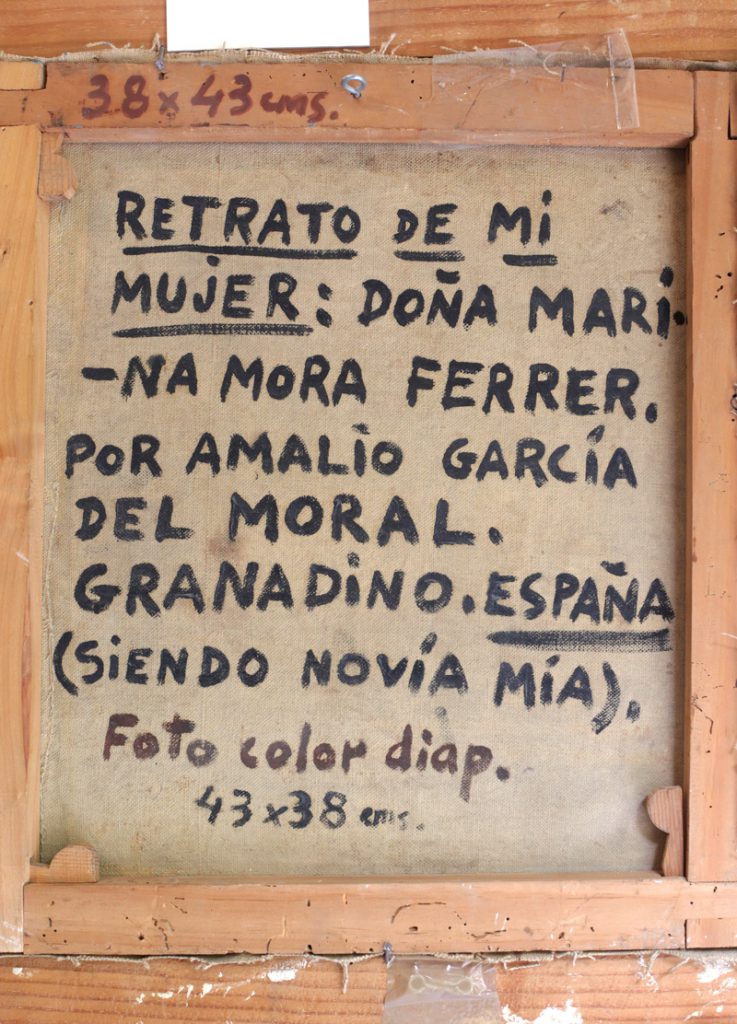 38x43 cms.
RETRATO DE Mi
MUJER: DOÑA MARi-
-NA MORA FERRER.
POR AMALiO GARCÍA
DEL MORAL.
GRANADiNO. ESPAÑA
(SiENDO NOVÍA MÍA).
Foto color diap.
43x38 cms.